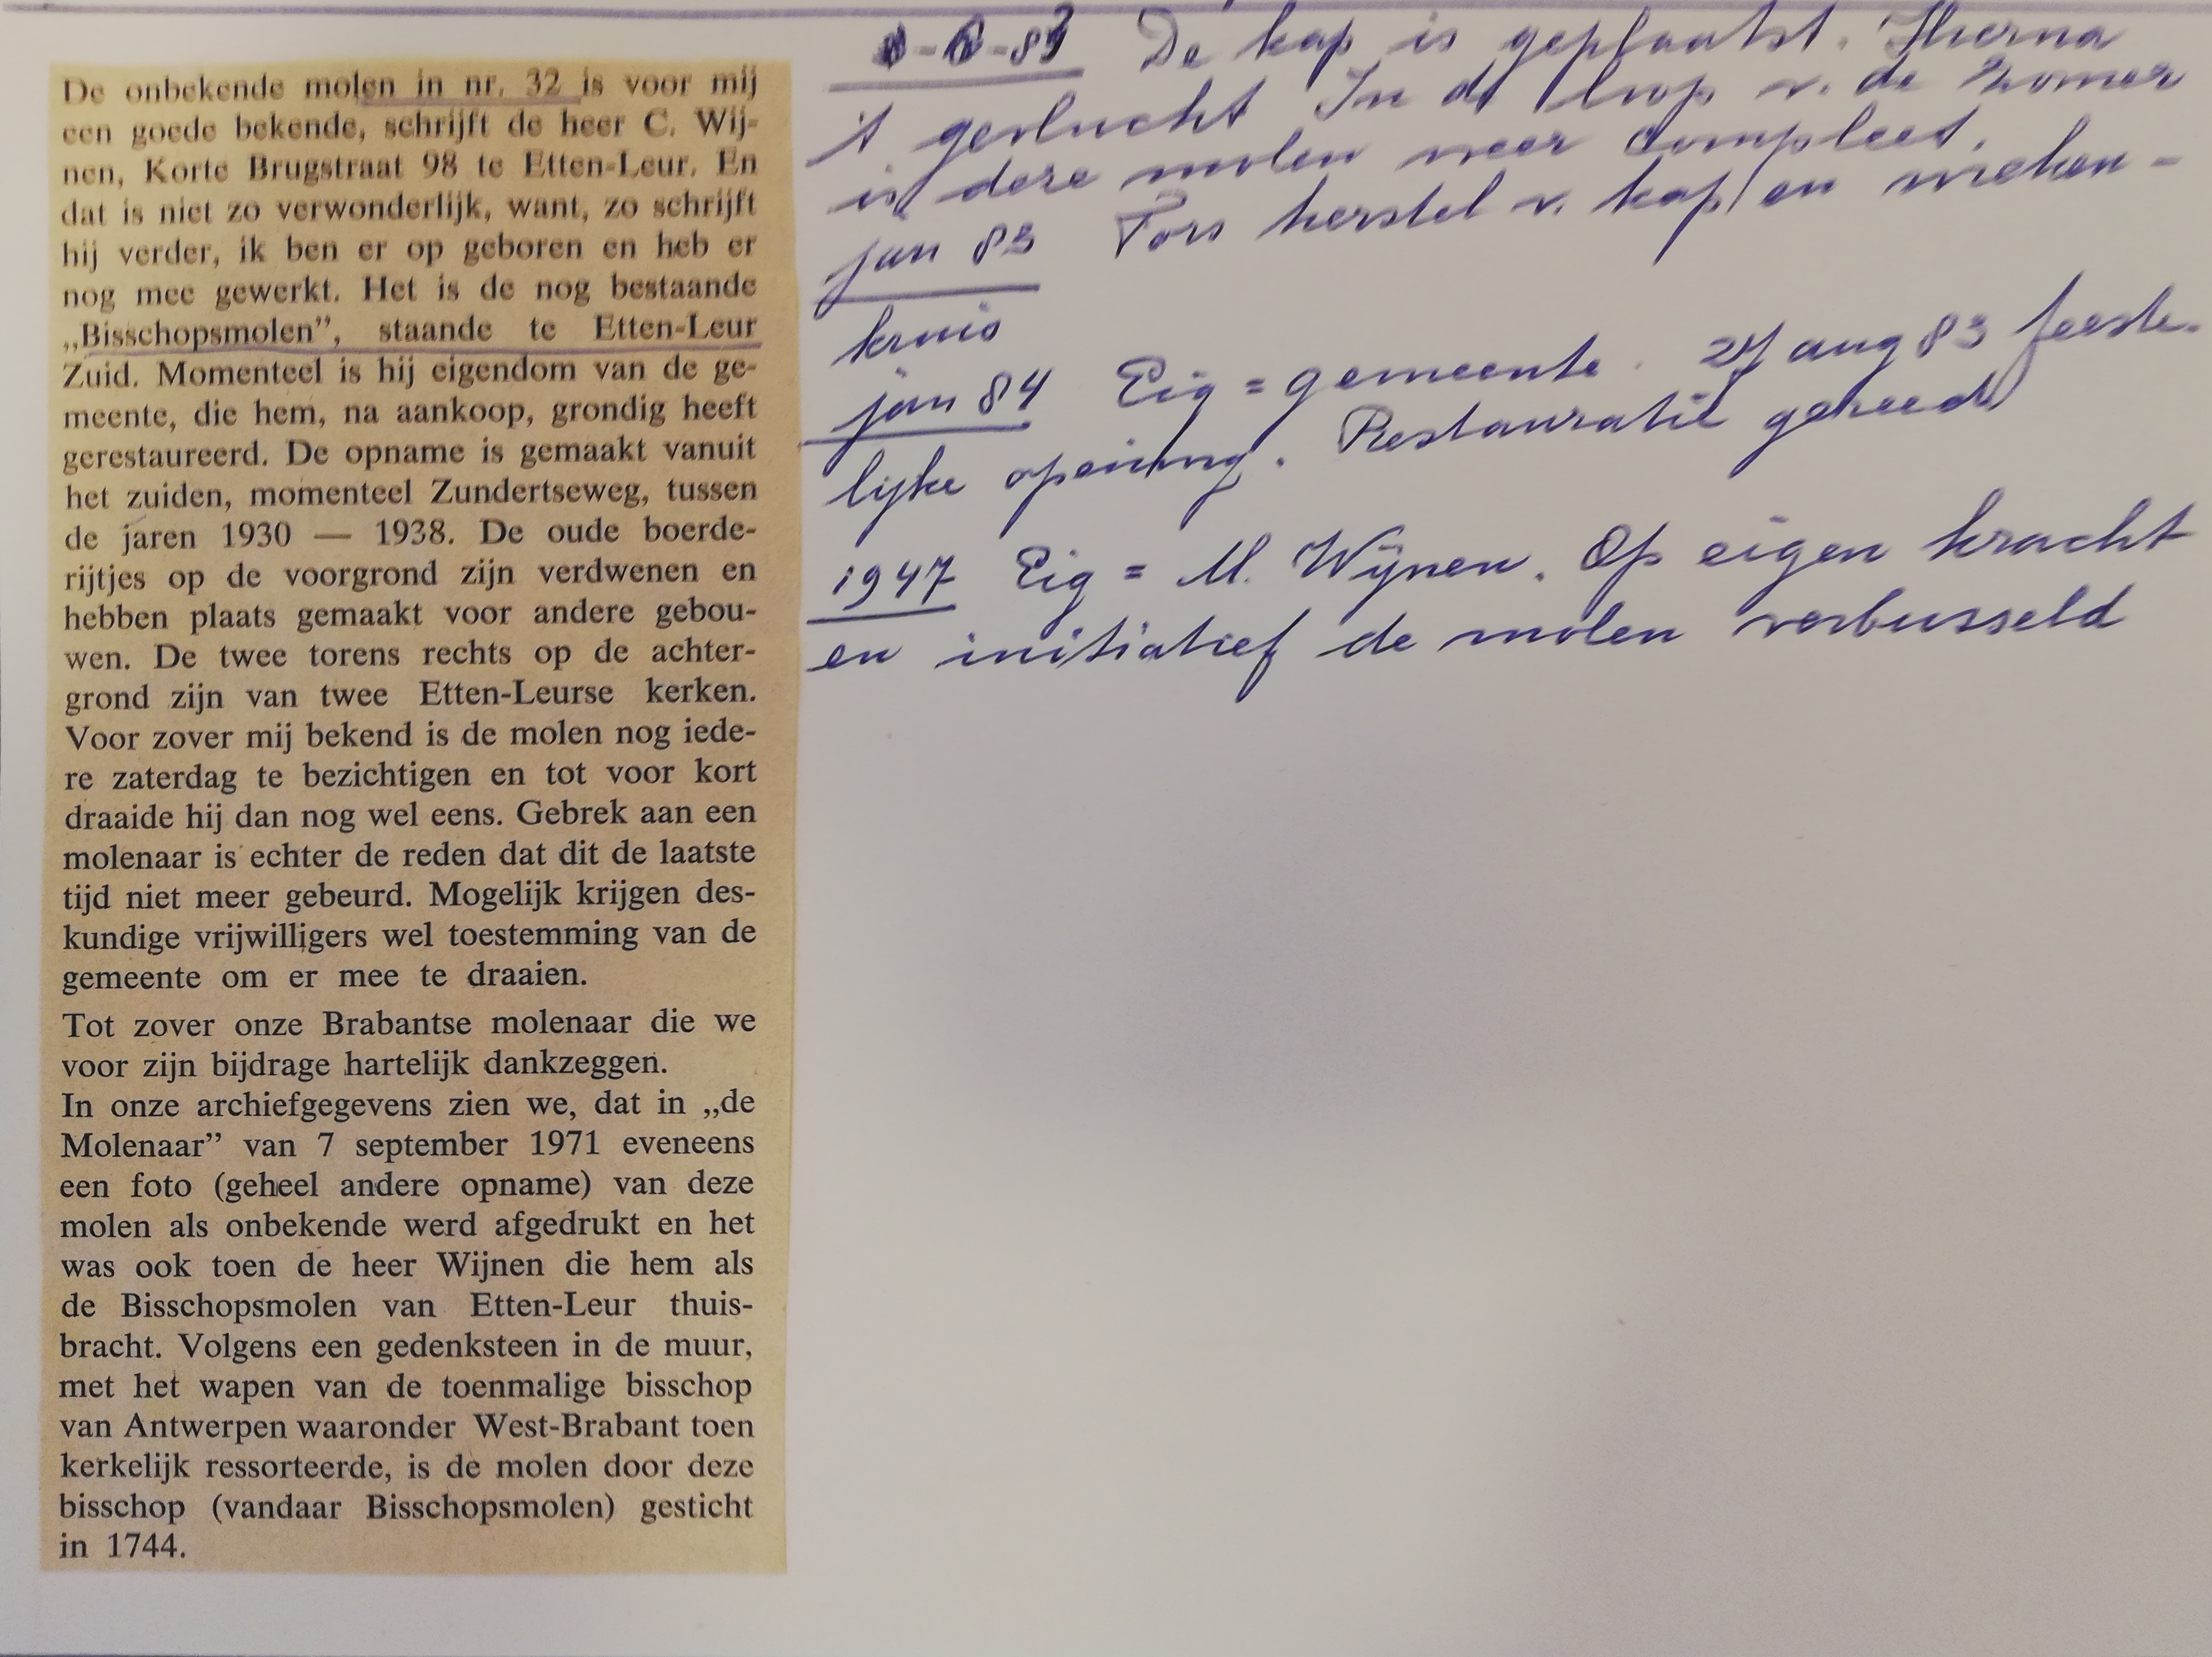 De onbekende molen in nr. 32 is voor mij
een goede bekende, schrijft de heer C. Wij-
nen, Korte Brugstraat 98 te Etten-Leur. En
dat is niet zo verwonderlijk, want, zo schrijft
hij verder, ik ben er op geboren en heb er
nog mee gewerkt. Het is de nog bestaande
„Bisschopsmolen”, staande te Etten-Leur
Zuid. Momenteel is hij eigendom van de ge-
meente, die hem, na aankoop, grondig heeft
gerestaureerd. De opname is gemaakt vanuit
het zuiden, momenteel Zundertseweg, tussen
de jaren 1930 — 1938. De oude boerde-
rijtjes op de voorgrond zijn verdwenen en
hebben plaats gemaakt voor andere gebou-
wen. De twee torens rechts op de achter-
grond zijn van twee Etten-Leurse kerken.
Voor zover mij bekend is de molen nog iede-
re zaterdag te bezichtigen en tot voor kort
draaide hij dan nog wel eens. Gebrek aan een
molenaar is echter de reden dat dit de laatste
tijd niet meer gebeurd. Mogelijk krijgen des-
kundige vrijwilligers wel toestemming van de
gemeente om er mee te draaien.
Tot zover onze Brabantse molenaar die we
voor zijn bijdrage hartelijk dankzeggen.
In onze archiefgegevens zien we, dat in „de
Molenaar” van 7 september 1971 eveneens
een foto (geheel andere opname) van deze
molen als onbekende werd afgedrukt en het
was ook toen de heer Wijnen die hem als
de Bisschopsmolen van Etten-Leur thuis-
bracht. Volgens een gedenksteen in de muur,
met het wapen van de toenmalige bisschop
van Antwerpen waaronder West-Brabant toen
kerkelijk ressorteerde, is de molen door deze
bisschop (vandaar Bisschopsmolen) gesticht
in 1744.
De kap is geplaatst. Hierna
't gevlucht In de loop v. de zomer
is deze molen weer compleet.
jan 83 Fors herstel v. kap en wieken-
kruis
jan 84 Eig = gemeente. 27 aug 83 feeste-
lijke opening. Restauratie gereed
1947 Eig = M. Wijnen. Op eigen kracht
en initiatief de molen verbusseld